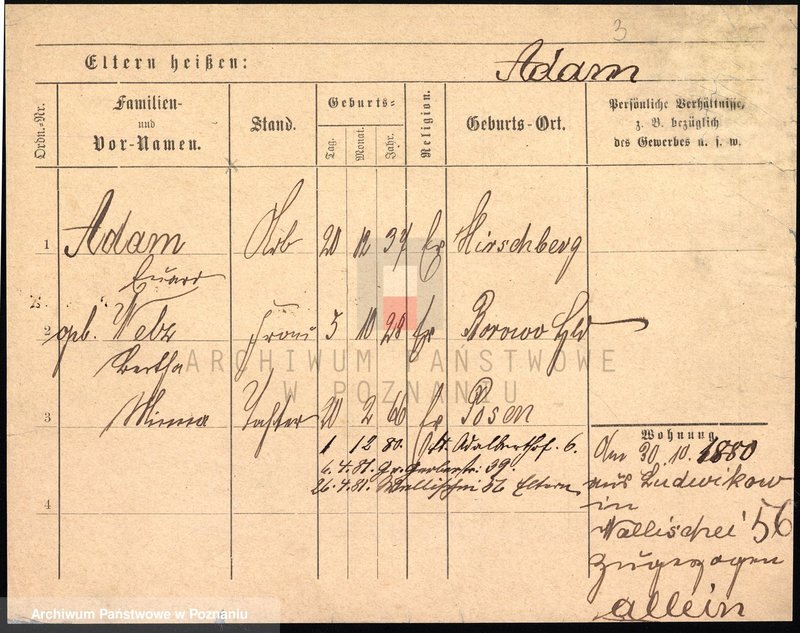 3
Eltern heißen:
Adam
Ordn.-Nr.
Familien-
und
Vor-Namen.
Stand.
Geburts-
Tag.
Monat.
Jahr.
Religion.
Geburts-Ort.
Persönliche Verhältnisse,
z. B. bezüglich
des Gewerbes u. s. w.
1 Adam Arb 20 12 37 Hirschberg
2 geb. Frau 5 10 28 Borowo
Bertha
3 Minna Tochter 20 2 66 Posen
1 12 80. Adalberthof. 6.
4.4.81. Gr. Gerberstr. 39.
26.4.81. Wallischei 56 Eltern
4
Wohnung
Am 30. 10. 1880
aus Ludwikow
in
Wallischei 56
zugezogen
allein
ARCHIWUM PAŃSTWOWE
W POZNANIU
Archiwum Państwowe w Poznaniu